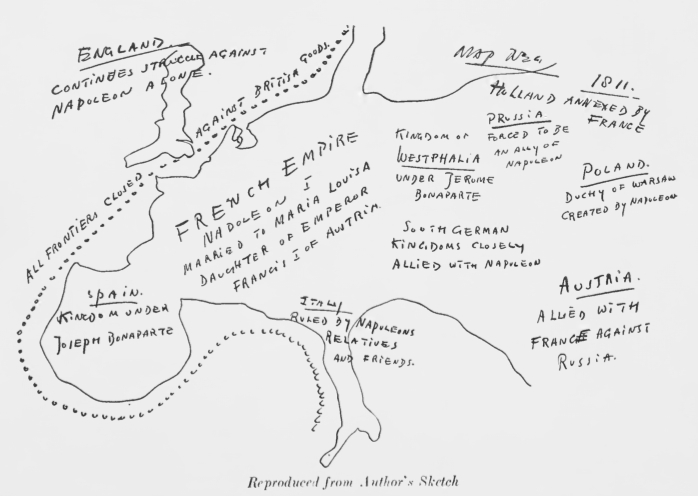 ENGLAND.
CONTINUES STRUGGLE AGAINST
NAPOLEON ALONE.
ALL FRONTIERS CLOSED AGAINST BRITISH GOODS.
MAP No
1811.
HOLLAND ANNEXED BY
FRANCE
PRUSSIA
FORCED TO BE
AN ALLY OF
NAPOLEON
KINGDOM OF
WESTPHALIA
UNDER JEROME
BONAPARTE
POLAND.
DUCHY OF WARSAW
CREATED BY NAPOLEON
FRENCH EMPIRE
NAPOLEON I
MARRIED TO MARIA LOUISA
DAUGHTER OF EMPEROR
FRANCIS I OF AUSTRIA.
SOUTH GERMAN
KINGDOMS CLOSELY
ALLIED WITH NAPOLEON
SPAIN.
KINGDOM UNDER
JOSEPH BONAPARTE
ITALY
RULED BY NAPOLEONS
RELATIVES
AND FRIENDS.
AUSTRIA.
ALLIED WITH
FRANCE AGAINST
RUSSIA.
Reproduced from Author's Sketch